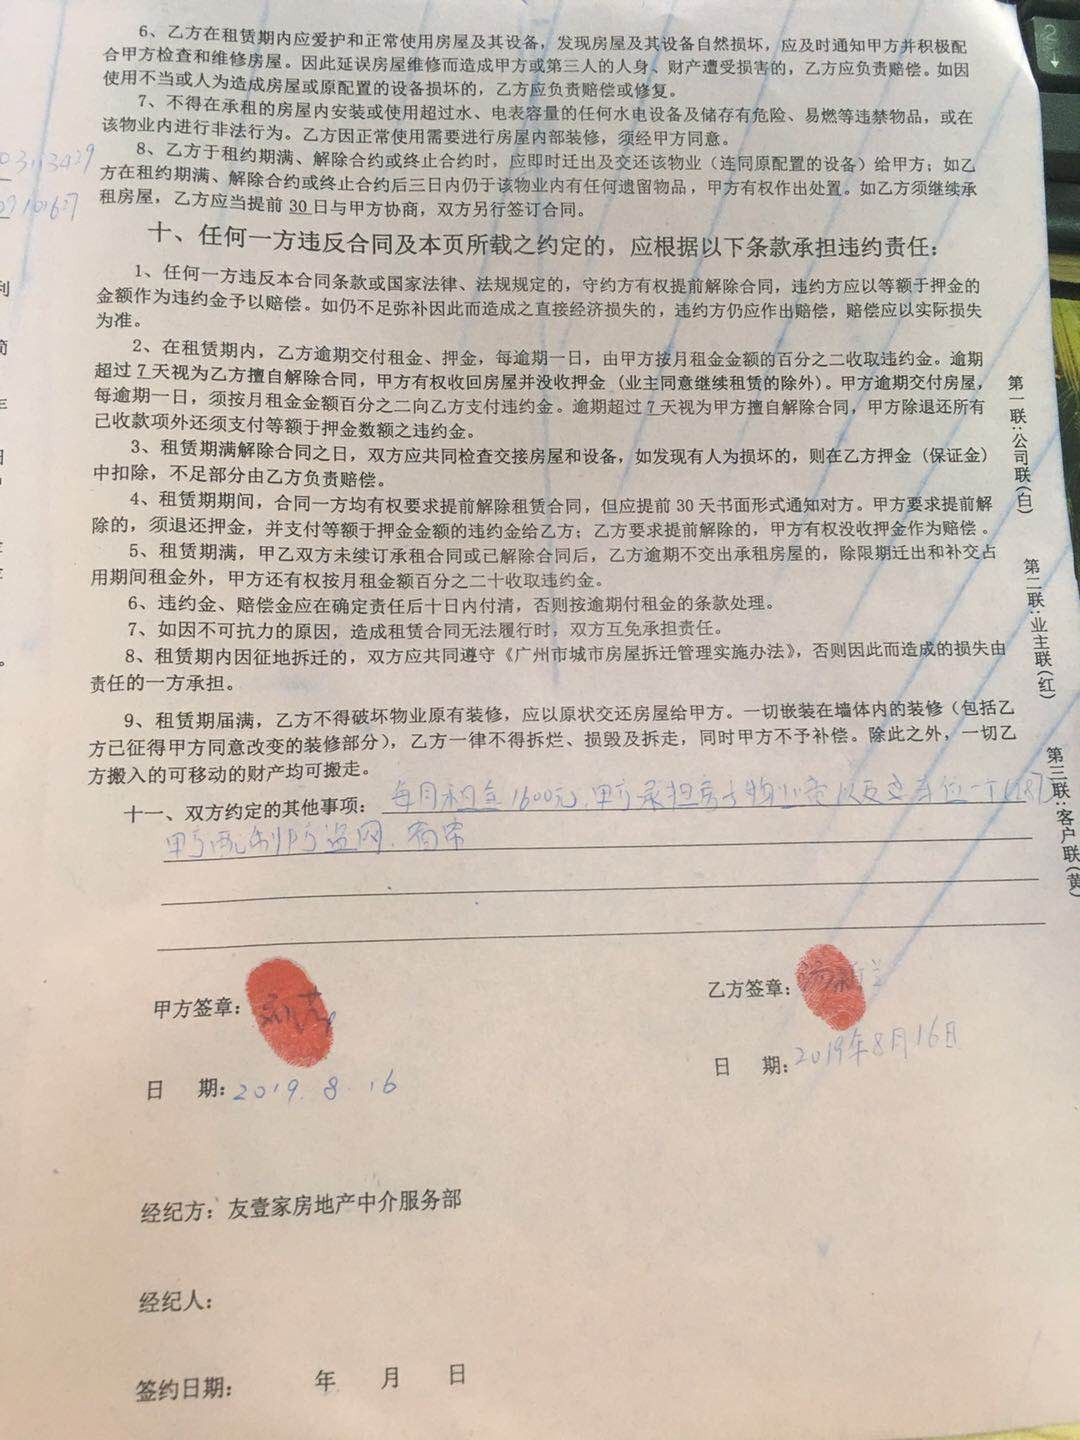 6、乙方在租赁期内应爱护和正常使用房屋及其设备，发现房屋及其设备自然损坏，应及时通知甲方并积极配
合甲方检查和维修房屋。因此延误房屋维修而造成甲方或第三人的人身、财产遭受损害的，乙方应负责赔偿。如因
使用不当或人为造成房屋或原配置的设备损坏的，乙方应负责赔偿或修复。
7、不得在承租的房屋内安装或使用超过水、电表容量的任何水电设备及储存有危险、易燃等违禁物品，或在
该物业内进行非法行为。乙方因正常使用需要进行房屋内部装修，须经甲方同意。
8、乙方于租约期满、解除合约或终止合约时，应即时迁出及交还该物业（连同原配置的设备）给甲方；如乙
方在租约期满、解除合约或终止合约后三日内仍于该物业内有任何遗留物品，甲方有权作出处置。如乙方须继续承
租房屋，乙方应当提前 30 日与甲方协商，双方另行签订合同。
十、任何一方违反合同及本页所载之约定的，应根据以下条款承担违约责任：
1、任何一方违反本合同条款或国家法律、法规规定的，守约方有权提前解除合同，违约方应以等额于押金的
金额作为违约金予以赔偿。如仍不足弥补因此而造成之直接经济损失的，违约方仍应作出赔偿，赔偿应以实际损失
为准。
2、在租赁期内，乙方逾期交付租金、押金，每逾期一日，由甲方按月租金金额的百分之二收取违约金。逾期
超过 7 天视为乙方擅自解除合同，甲方有权收回房屋并没收押金（业主同意继续租赁的除外）。甲方逾期交付房屋，
每逾期一日，须按月租金金额百分之二向乙方支付违约金。逾期超过 7 天视为甲方擅自解除合同，甲方除退还所有
已收款项外还须支付等额于押金数额之违约金。
3、租赁期满解除合同之日，双方应共同检查交接房屋和设备，如发现有人为损坏的，则在乙方押金（保证金）
中扣除，不足部分由乙方负责赔偿。
4、租赁期期间，合同一方均有权要求提前解除租赁合同，但应提前 30 天书面形式通知对方。甲方要求提前解
除的，须退还押金，并支付等额于押金金额的违约金给乙方；乙方要求提前解除的，甲方有权没收押金作为赔偿 。
5、租赁期满，甲乙双方未续订承租合同或已解除合同后，乙方逾期不交出承租房屋的，除限期迁出和补交占
用期间租金外，甲方还有权按月租金额百分之二十收取违约金。
6、违约金、赔偿金应在确定责任后十日内付清，否则按逾期付租金的条款处理。
7、如因不可抗力的原因，造成租赁合同无法履行时，双方互免承担责任。
8、租赁期内因征地拆迁的，双方应共同遵守《广州市城市房屋拆迁管理实施办法》，否则因此而造成的损失由
责任的一方承担。
9、租赁期届满，乙方不得破坏物业原有装修，应以原状交还房屋给甲方。一切嵌装在墙体内的装修（包括乙
方已征得甲方同意改变的装修部分），乙方一律不得拆烂、损毁及拆走，同时甲方不予补偿。除此之外，一切乙
方搬入的可移动的财产均可搬走。
十一、双方约定的其他事项：每月租金1600元，甲方承担房子物业费以及车位一个
甲方配制防盗网、窗帘
甲方签章：
乙方签章：
日 期：2019.8.16
日 期：2019年8月16日
经纪方：友壹家房地产中介服务部
经纪人：
签约日期： 年 月 日
第一联：公司联（白）
第二联：业主联（红）
第三联：客户联（黄）